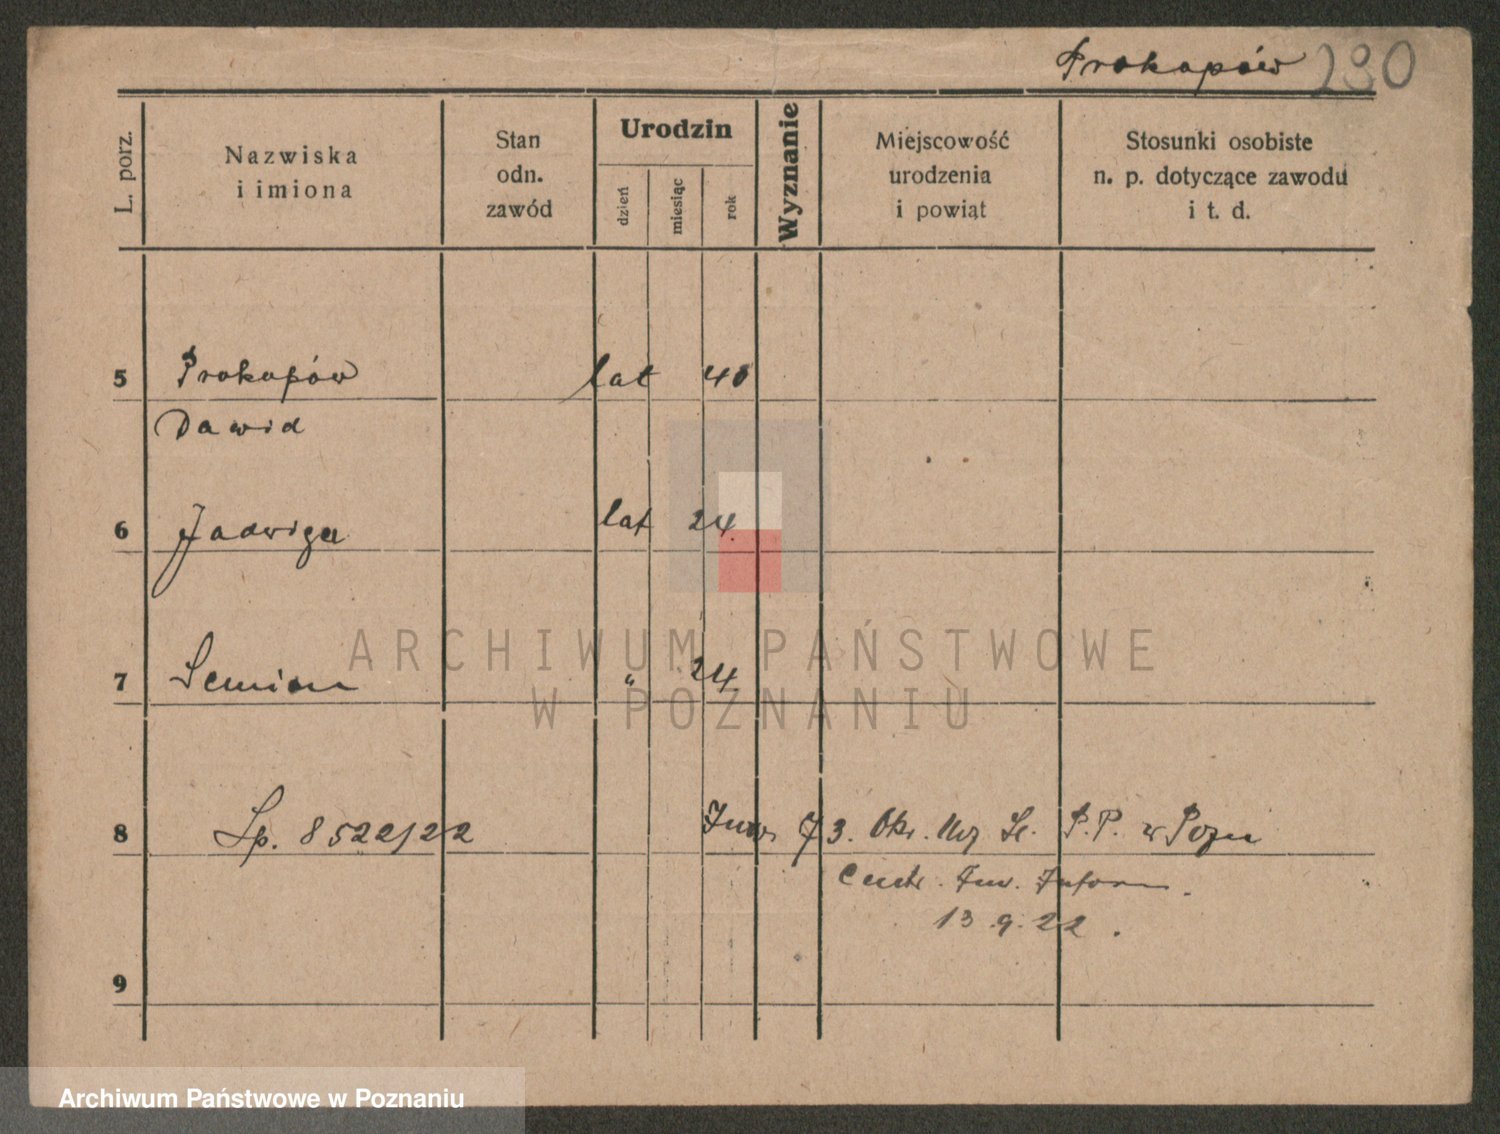 Prokopów 230
L. porz.
Nazwiska
i imiona
Stan
odn.
zawód
Urodzin
dzień
miesiąc
rok
Wyznanie
Miejscowość
urodzenia
i powiąt
Stosunki osobiste
n. p. dotyczące zawodu
i t. d.
5 Prokopów lat 40
Dawid
6 Jadwiga lat 24
7 Semion " 24
8 Lp. 8522/22 3. Okr. P.P. w Pozn
Inform.
13.9.22.
9
ARCHIWUM PAŃSTWOWE
W POZNANIU
Archiwum Państwowe w Poznaniu